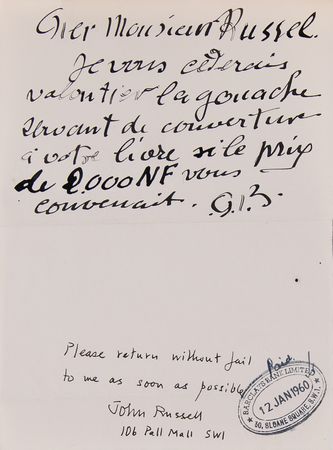 Cher Monsieur Russel.
Je vous céderais
valontier la gouache
servant de couverture
à votre livre si le prix
de 2.000 NF vous
convenait. G.B.
Please return without fail
to me as soon as possible
John Russell
106 Pall Mall SW1
Paid
BARCLAYS BANK LIMITED
12 JAN 1960
50, SLOANE SQUARE, S.W.1.